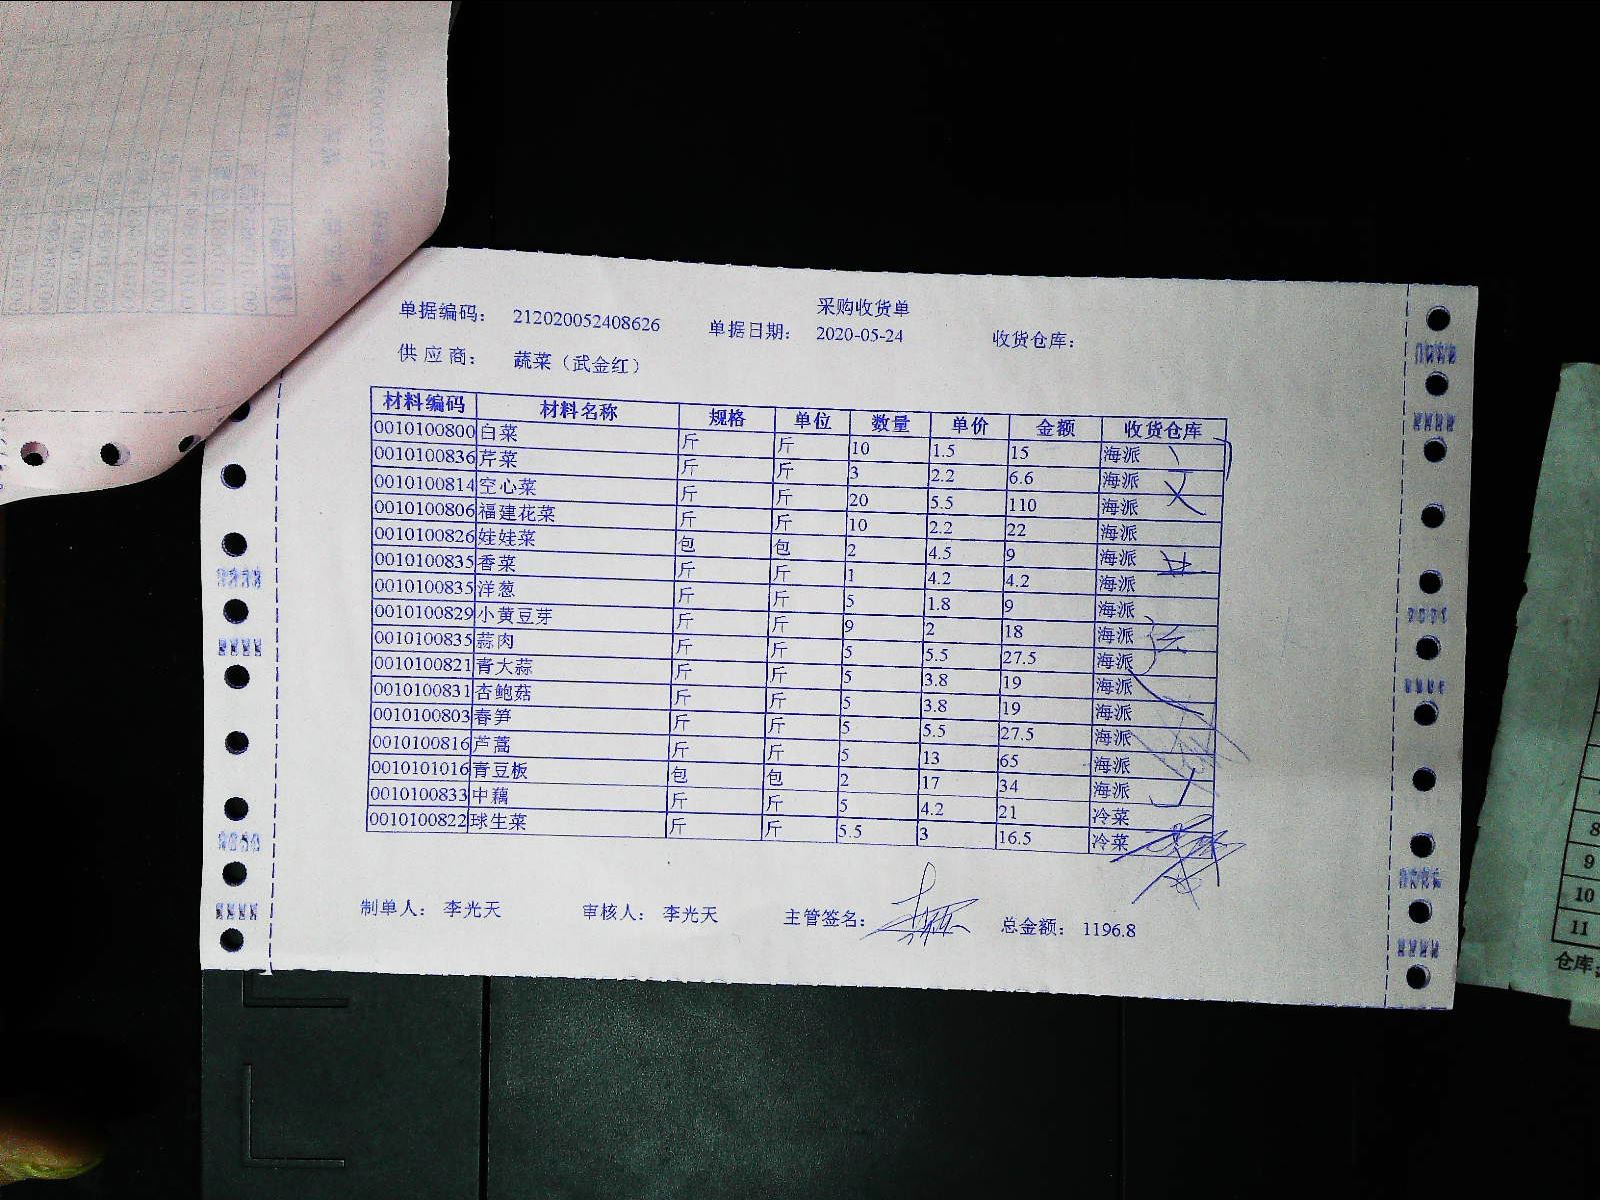 采购收货单
单据编码： 212020052408626 单据日期： 2020-05-24 收货仓库：
供应商： 蔬菜（武金红）
材料编码 材料名称 规格 单位 数量 单价 金额 收货仓库
0010100800 白菜 斤 斤 10 1.5 15 海派
0010100836 芹菜 斤 斤 3 2.2 6.6 海派
0010100814 空心菜 斤 斤 20 5.5 110 海派
0010100806 福建花菜 斤 斤 10 2.2 22 海派
0010100826 娃娃菜 包 包 2 4.5 9 海派
0010100835 香菜 斤 斤 1 4.2 4.2 海派
0010100835 洋葱 斤 斤 5 1.8 9 海派
0010100829 小黄豆芽 斤 斤 9 2 18 海派
0010100835 蒜肉 斤 斤 5 5.5 27.5 海派
0010100821 青大蒜 斤 斤 5 3.8 19 海派
0010100831 杏鲍菇 斤 斤 5 3.8 19 海派
0010100803 春笋 斤 斤 5 5.5 27.5 海派
0010100816 芦蒿 斤 斤 5 13 65 海派
0010101016 青豆板 包 包 2 17 34 海派
0010100833 中藕 斤 斤 5 4.2 21 冷菜
0010100822 球生菜 斤 斤 5.5 3 16.5 冷菜
制单人： 李光天 审核人： 李光天 主管签名： 总金额： 1196.8
8
9
10
11
仓库：